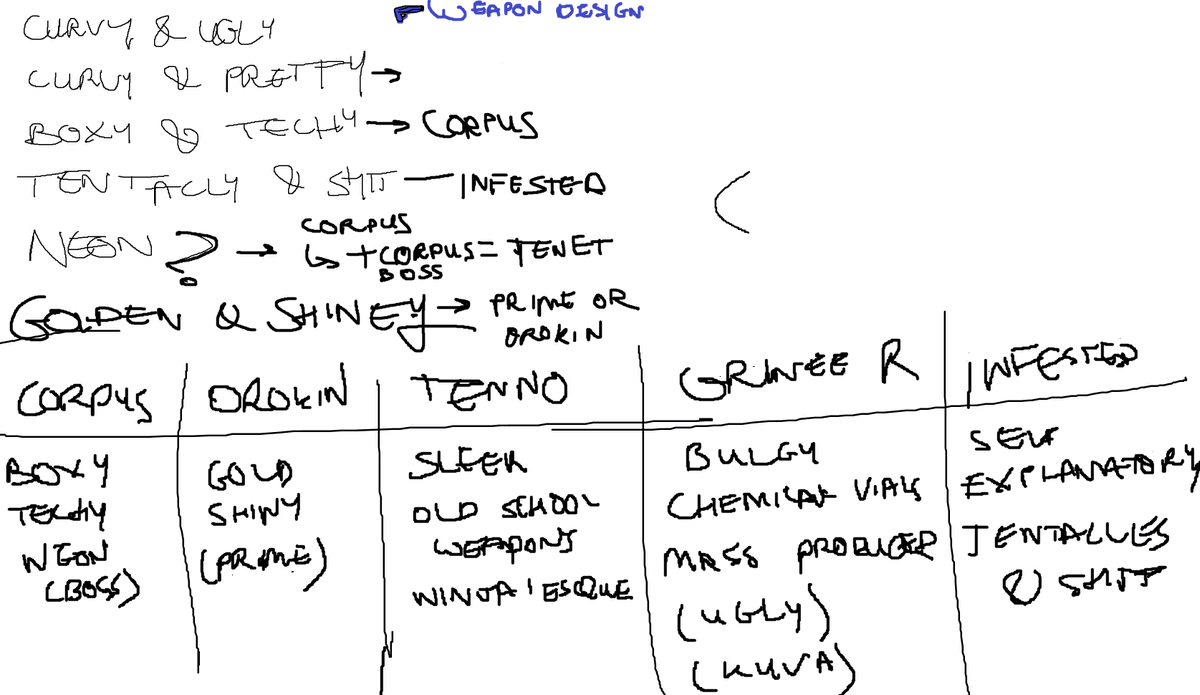 WEAPON DESIGN
CURVY & UGLY
CURVY & PRETTY →
BOXY & TECHY → CORPUS
TENTACLY & SHIT — INFESTED
NEON? → CORPUS
↳ + CORPUS BOSS = TENET
GOLDEN & SHINEY → PRIME OR OROKIN
CORPUS
BOXY
TECHY
NEON
(BOSS)
OROKIN
GOLD
SHINY
(PRIME)
TENNO
SLEEK
OLD SCHOOL
WEAPONS
NINJA'ESQUE
GRINEER
BULGY
CHEMICAL VIALS
MASS PRODUCED
(UGLY)
(KUVA)
INFESTED
SELF
EXPLANATORY
TENTACLES
& SHIT